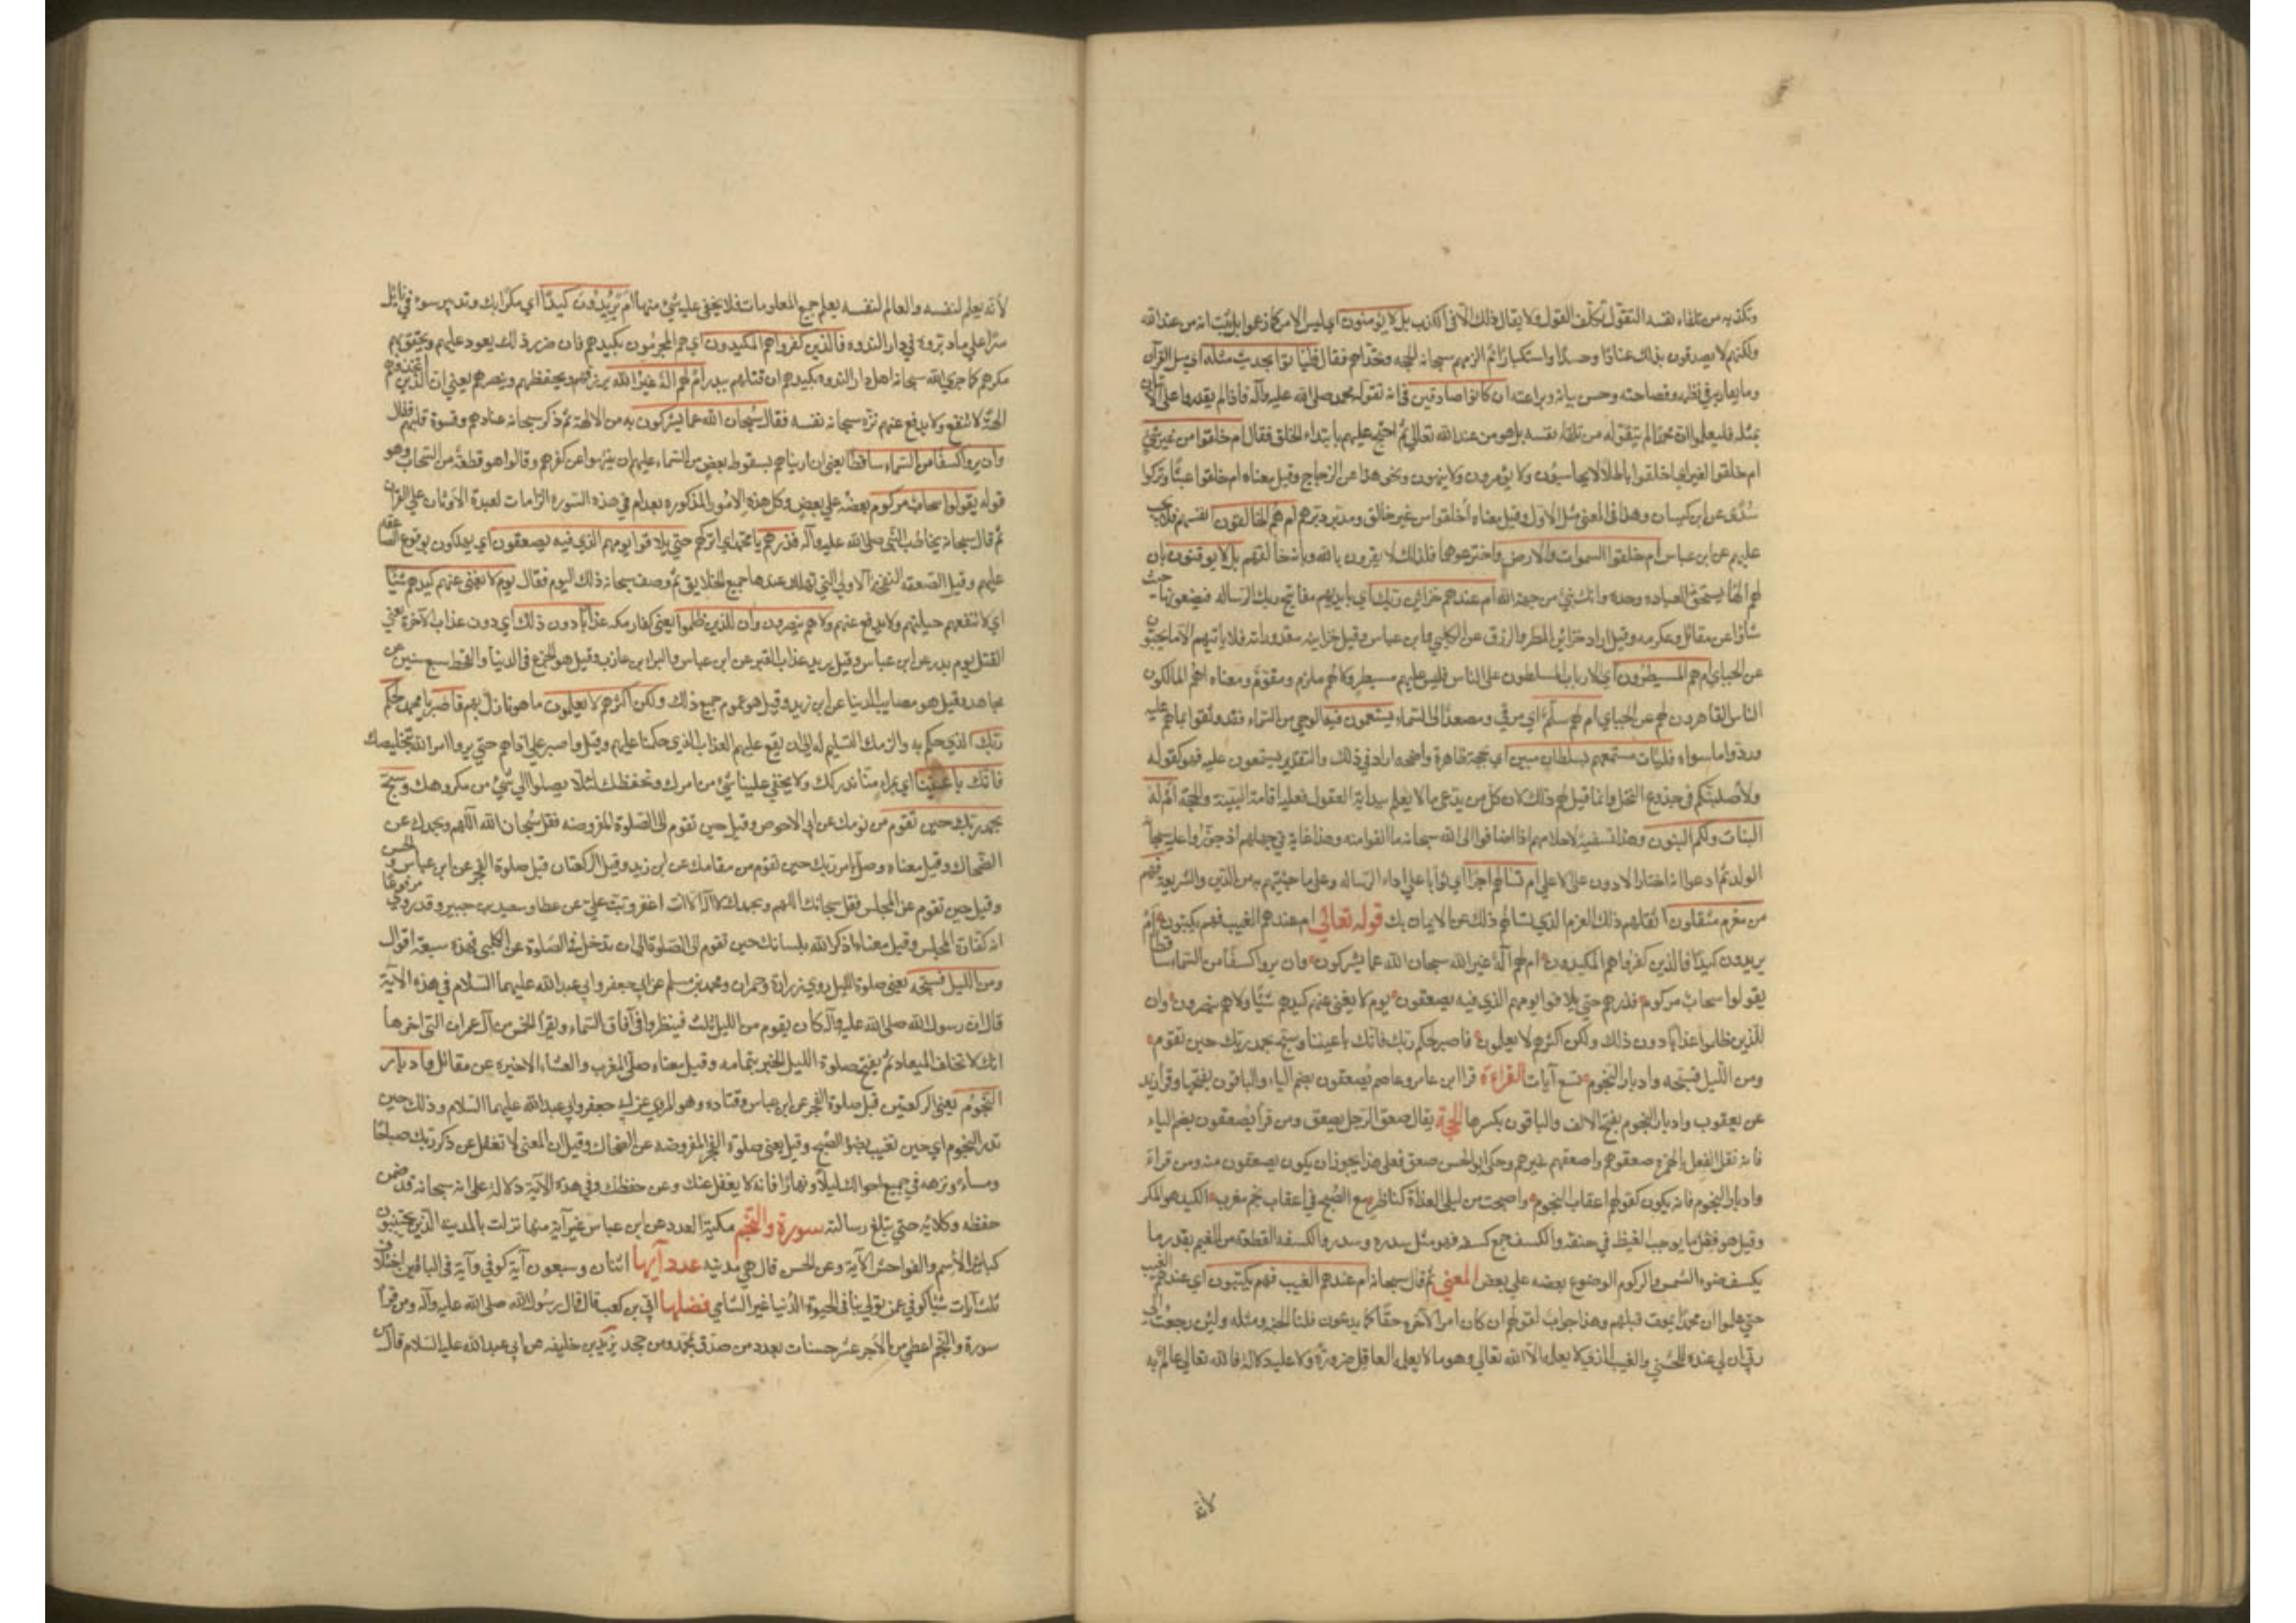 وتكذبه من تلقاء نفسه التقول تكلف القول ولا يقال ذلك الا في الكذب بل لا يؤمنون اي ليس الامر كما زعموا بل ثبت انه من عند الله
ولكنهم لا يصدقون بذلك عنادًا وحسدًا واستكبارًا ثم الزمهم سبحانه الحجه وتحداهم فقال فلياتوا بحديث مثله اي مثل القرآن
وما يقاربه في نظمه وفصاحته وحسن بيانه وبراعته ان كانوا صادقين في انه تقوله محمد صلى الله عليه وآله فاذا لم يقدروا على الاتيان
بمثله فليعلموا ان محمدًا لم يتقوله من تلقاء نفسه بل هو من عند الله تعالي ثم احتج عليهم بابتداء الخلق فقال ام خلقوا من غير شئ
ام خلقوا لغير شئ اي اخلقوا باطلا لا يحاسبون ولا يؤمرون ولا ينهون ونحو هذا عن الزجاج وقيل معناه ام خلقوا عبثًا وتركوا
سُدًى عن ابن كيسان وهذا في المعني مثل الاول وقيل معناه أخلقوا من غير خالق ومدبر دبرهم ام هم الخالقون انفسهم فلا يجب
عليهم عن ابن عباس ام خلقوا السموات والارض واخترعوهما فلذلك لا يقرون بالله وبانه خالقهم بل لا يوقنون بان
لهم الهًا يستحق العباده وحده وانك نبي من جهة الله ام عندهم خزائن ربك اي بايديهم مفاتيح ربك بالرساله فيضعونها حيث
شاؤا عن مقاتل وعكرمه وقيل اراد خزائن المطر والرزق عن الكلبي وابن عباس وقيل خزاينه مقدوراته فلا ياتيهم الا ما يحبون
عن الجبائي ام هم المسيطرون اي الارباب المسلطون على الناس فليس عليهم مسيطر ولا لهم ملزم ومقوّم ومعناه اهم المالكون
الناس القاهرون لهم عن الجبائي ام لهم سلّم اي مرقي ومصعدًا الى السماء يستمعون فيه الوحي من السماء فقد وثقوا بما هم عليه
وردّوا ما سواه فليات مستمعهم بسلطان مبين اي بحجة ظاهرة واضحه ان ادعي ذلك والتقدير يستمعون عليه فهو كقوله
ولأصلبنكم في جذوع النخل وانما قيل لهم ذلك لان كل من يدعي ما لا يعلم ببداية العقول فعليه اقامة البينة والحجة ام له
البنات ولكم البنون وهذا تسفيه لاحلامهم اذ اضافوا الى الله سبحانه ما انفوا منه وهذا غاية في جهلهم اذ جوّزوا عليه سبحانه
الولد ثم ادعوا انه اختار الادون على الاعلي ام تسالهم اجرًا اي ثوابًا على اداء الرساله وعلى ما جئتهم به من الدين والشريعه فهم
من مغرم مثقلون اثقلهم ذلك الغرم الذي تسالهم ذلك عن الايمان بك قوله تعالي ام عندهم الغيب فهم يكتبون ام
يريدون كيدًا فالذين كفروا هم المكيدون ام لهم اله غير الله سبحان الله عما يشركون وان يروا كسفًا من السماء ساقطا
يقولوا سحاب مركوم فذرهم حتي يلاقوا يومهم الذي فيه يصعقون يوم لا يغني عنهم كيدهم شيًا ولا هم ينصرون وان
للذين ظلموا عذابًا دون ذلك ولكن اكثرهم لا يعلمون فاصبر لحكم ربك فانك باعيننا وسبح بحمد ربك حين تقوم
ومن الليل فسبحه وادبار النجوم تسع آيات القراءة قرا ابن عامر وعاصم يُصعقون بضم الياء والباقون بفتحها وقرا زيد
عن يعقوب وادبار النجوم بفتح الالف والباقون بكسرها الحجة يقال صعق الرجل يصعق ومن قرأ يُصعقون بضم الياء
فانه نقل الفعل بالهمزه صعقوهم واصعقهم غيرهم وحكى ابو الحسن صعق فعلى هذا يجوز ان يكون يصعقون منه ومن قراء
وادبار النجوم فانه يكون كقولهم اعقاب النجوم واصبحت من ليلى الغداة كناظر مع الصبح في اعقاب نجم مغرب الكيد هو المكر
وقيل هو فعل ما يوجب الغيظ في حنقه والكسف جمع كسفه فهو مثل سدره وسدر والكسفه القطعة من الغيم بقدر ما
يكسف ضوء الشمس والركوم الموضوع بعضه علي بعض المعني ثم قال سبحانه ام عندهم الغيب فهم يكتبون اي عندهم الغيب
حتي علموا ان محمدًا يموت قبلهم وهذا جواب لقولهم ان كان امر الآخره حقًا كما يدعون فلنا الجنه ومثله ولئن رجعت الى
ربي ان لي عنده للحسني والغيب الذي لا يعلمه الا الله تعالي وهو ما لا يعلمه العاقل ضرورة ولا عليه دلالة فالله تعالي عالم به
لأنه
لأنه يعلم لنفسه والعالم لنفسه يعلم جميع المعلومات فلا يخفى عليه شئ منها ام يريدون كيدًا اي مكرًا بك وتدبير سوء في بابك
سرًا علي ما دبروه في دار الندوه فالذين كفروا هم المكيدون اي هم المجزيون بكيدهم فان ضرر ذلك يعود عليهم ويحيق بهم
مكرهم كما جزي الله سبحانه اهل دار الندوه بكيدهم ان قتلهم ببدر ام لهم اله غير الله يرزقهم ويحفظهم وينصرهم يعني ان الذين اتخذوهم
الهة لا تنفع ولا يدفع عنهم نزّه سبحانه نفسه فقال سبحان الله عما يشركون به من الالهة ثم ذكر سبحانه عنادهم وقسوة قلوبهم فقال
وان يروا كسفًا من السماء ساقطًا يعني ان اريناهم بسقوط بعض من السماء عليهم لن ينتهوا عن كفرهم وقالوا هو قطعة من السحاب وهو
قوله يقولوا سحاب مركوم بعضه علي بعض وكل هذه الامور المذكوره بعد ام في هذه السوره الزامات لعبدة الاوثان علي القرآن
ثم قال سبحانه يخاطب النبي صلى الله عليه وآله فذرهم يا محمد اي اتركهم حتي يلاقوا يومهم الذي فيه يصعقون اي يهلكون بوقوع الصاعقه
عليهم وقيل الصعقه النفخة الاولي التي تهلك عندها جميع الخلايق ثم وصف سبحانه ذلك اليوم فقال يوم لا يغني عنهم كيدهم شيئًا
اي لا تنفعهم حيلتهم ولا يدفع عنهم ولا هم ينصرون وان للذين ظلموا يعني كفار مكه عذابًا دون ذلك اي دون عذاب الآخرة يعني
القتل يوم بدر عن ابن عباس وقيل يريد عذاب القبر عن ابن عباس والبراء بن عازب وقيل هو الجوع في الدنيا والقحط سبع سنين عن
مجاهد وقيل هو مصايب الدنيا عن ابن زيد وقيل هو عموم جميع ذلك ولكن اكثرهم لا يعلمون ما هو نازل بهم فاصبر يا محمد لحكم
ربك الذي حكم به والزمك التسليم له الى ان يقع عليهم العذاب الذي حكمنا عليهم وقيل واصبر علي اذاهم حتي يروا امر الله بتخليصك
فانك باعيننا اي بمراء منا ندركك ولا يخفي علينا شئ من امرك ونحفظك لئلا يصلوا الي شئ من مكروهك وسبح
بحمد ربك حين تقوم من نومك عن ابي الاحوص وقيل حين تقوم الى الصلوة المفروضه فقل سبحان الله اللهم وبحمدك عن
الضحاك وقيل معناه وصل بامر ربك حين تقوم من مقامك عن ابن زيد وقيل الركعتان قبل صلوة الفجر عن ابن عباس والحسن
وقيل حين تقوم من المجلس فقل سبحانك اللهم وبحمدك لا اله الا انت اغفر وتب علي عن عطا وسعيد بن جبير وقد روي مرفوعًا
انه كفارة المجلس وقيل معناه اذكر الله بلسانك حين تقوم الى الصلوة الى ان تدخل في الصلوة عن الكلبي فهذه سبعة اقوال
ومن الليل فسبحه يعني صلوة الليل روي زرارة وحمران ومحمد بن مسلم عن ابي جعفر وابي عبد الله عليهما السلام في هذه الاية
قال ان رسول الله صلى الله عليه وآله كان يقوم من الليل ثلث فينظر في آفاق السماء ويقرأ الخمس من آل عمران التي اخرها
انك لا تخلف الميعاد ثم يفتح صلوة الليل الخبر بتمامه وقيل معناه صلى المغرب والعشاء الاخيره عن مقاتل وادبار
النجوم يعني الركعتين قبل صلوة الفجر عن ابن عباس وقتاده وهو المروي عن ابي جعفر وابي عبد الله عليهما السلام وذلك حين
تدبر النجوم اي حين تغيب بضوء الصبح وقيل يعني صلوة الفجر المفروضه عن الضحاك وقيل ان المعنى لا تغفل عن ذكر ربك صباحًا
ومساء ونزهه في جميع احوالك ليلًا ونهارًا فانه لا يغفل عنك وعن حفظك وفي هذه الآية دلالة على انه سبحانه قد ضمن
حفظه وكلائه حتي يبلغ رسالته سورة والنجم مكية العدد عن ابن عباس غير آية منها نزلت بالمدينه الذين يجتنبون
كبائر الاثم والفواحش الآية وعن الحسن قال هي مدنيه عدد آيها اثنان وستون آية كوفي وآية في الباقين اختلافها
ثلث آيات شيًا كوفي عمن تولي شامي الحيوة الدنيا غير الشامي فضلها ابي بن كعب قال قال رسول الله صلى الله عليه وآله ومن قرأ
سورة والنجم اعطي من الاجر عشر حسنات بعدد من صدق بمحمد ومن جحد يزيد بن خليفه عن ابي عبد الله عليه السلام قال